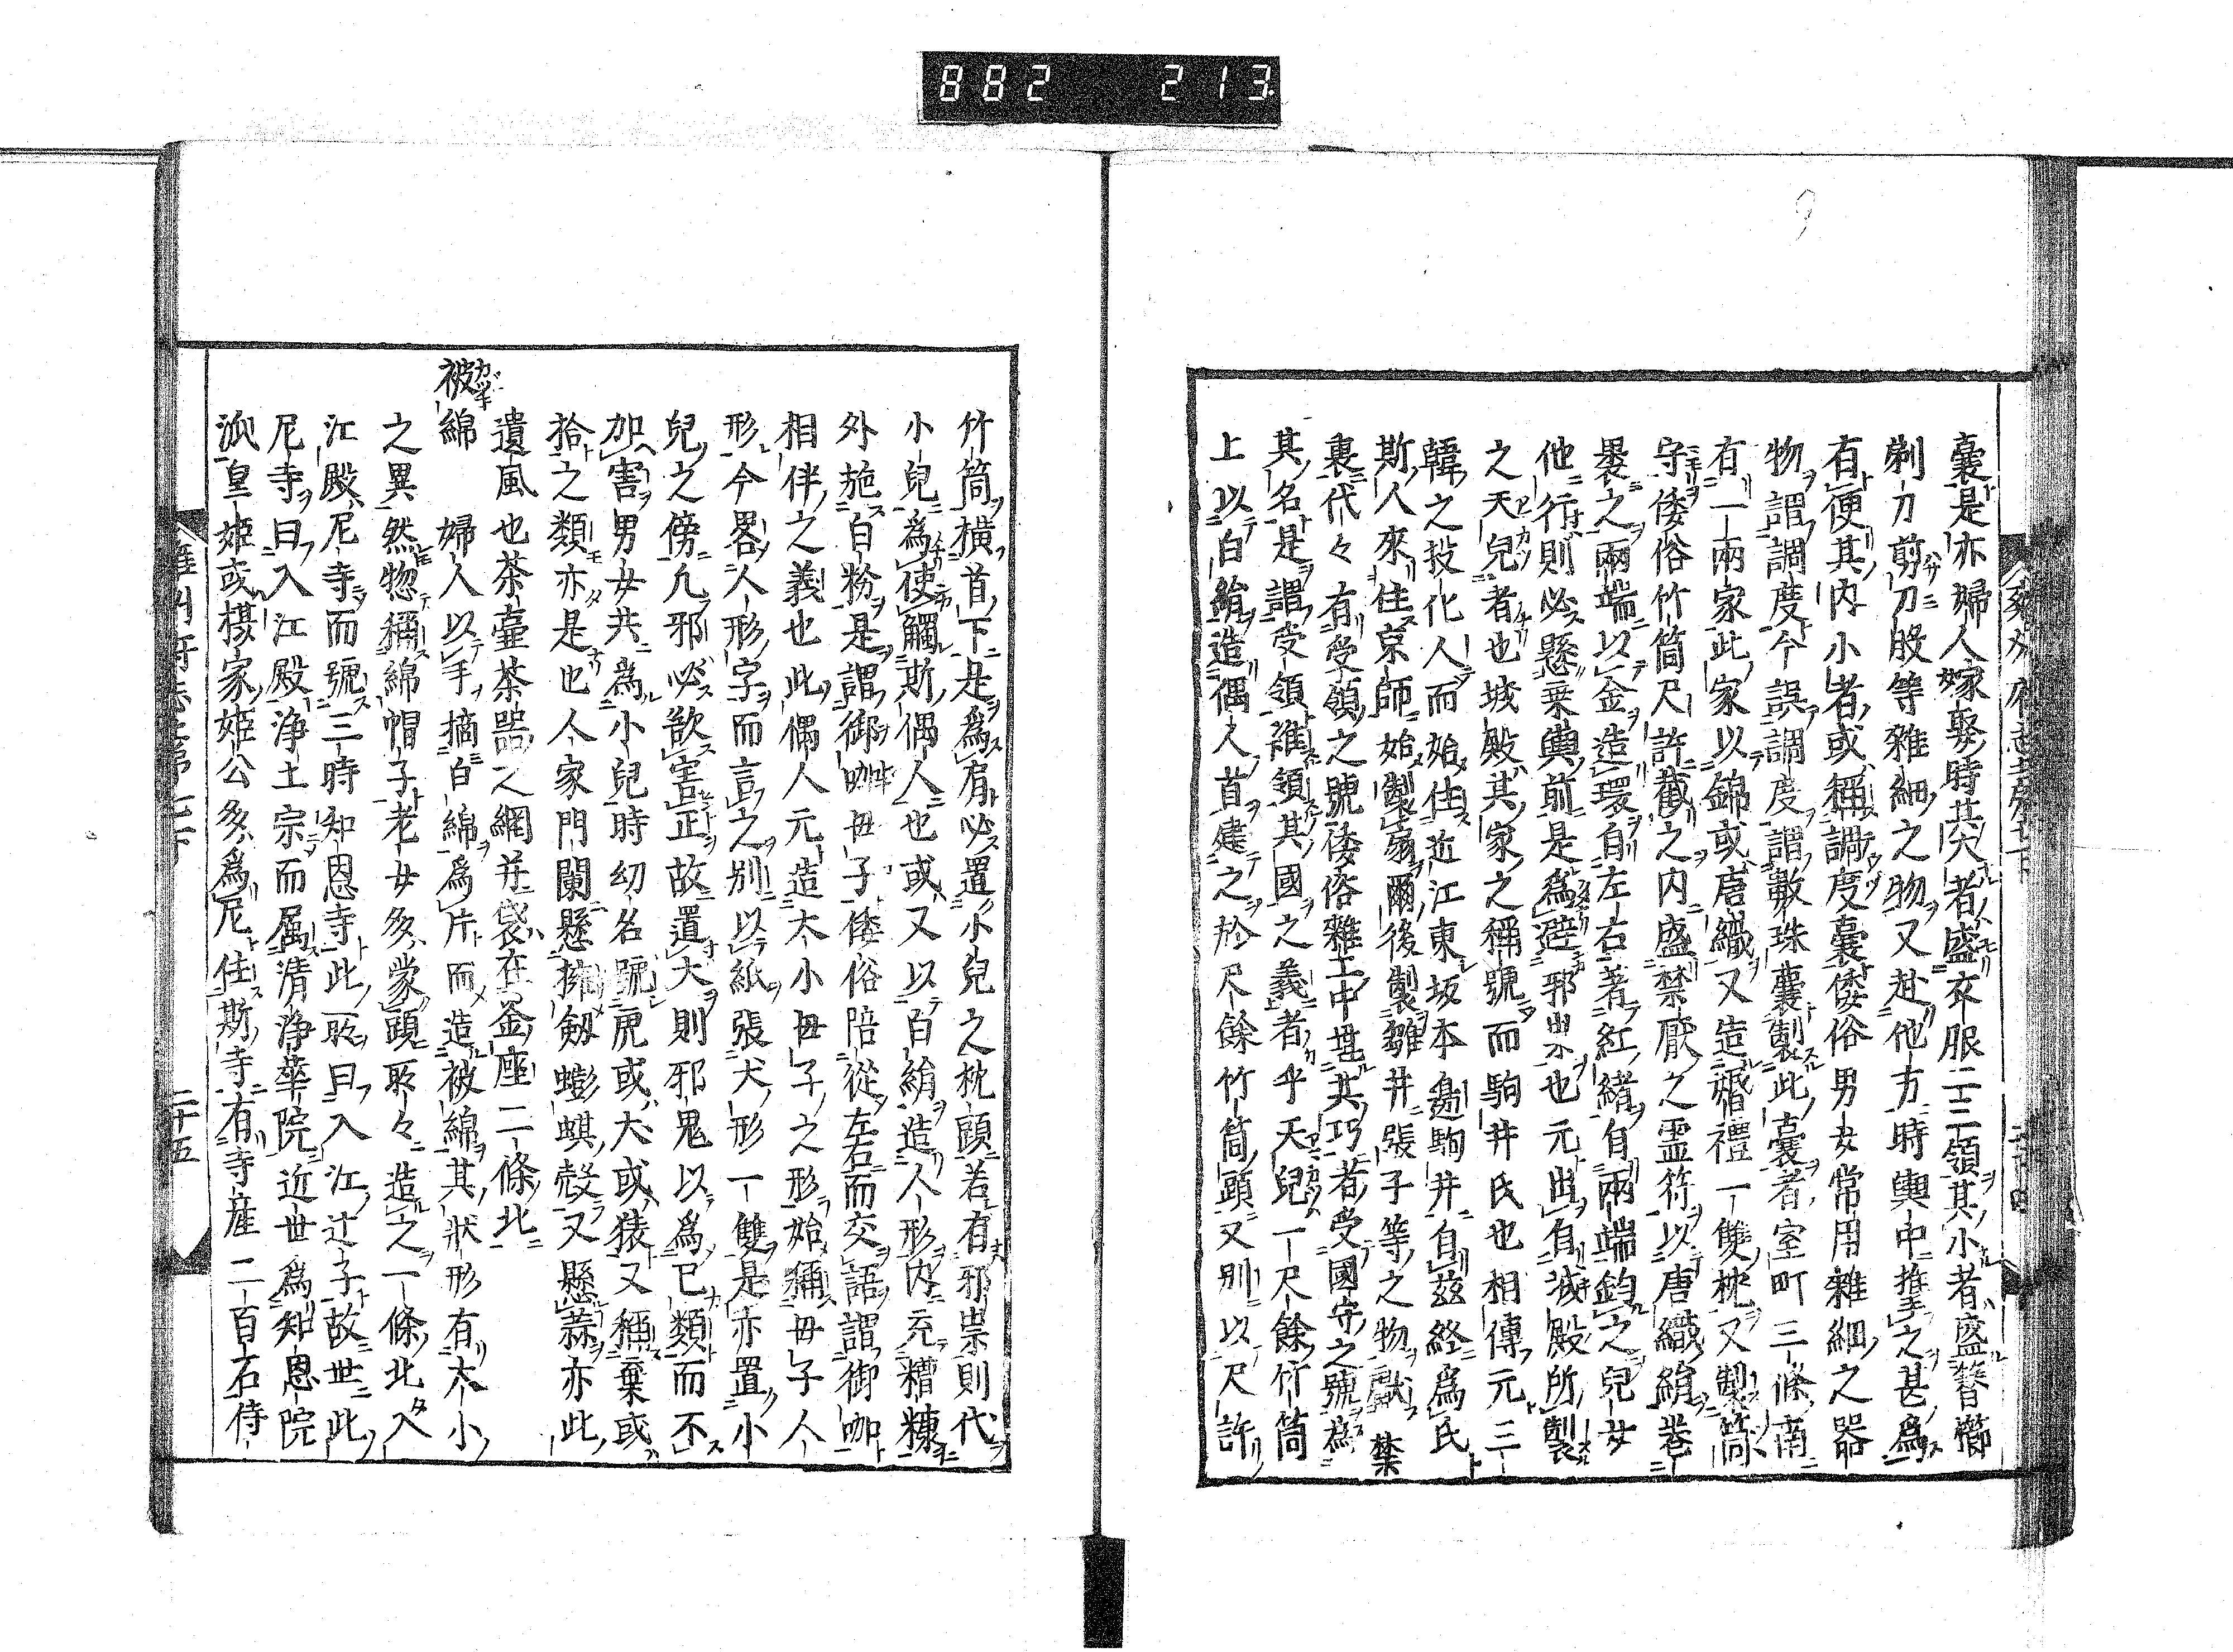 882 213
囊是亦婦人嫁娶時其大者盛衣服二三領其小者盛簪櫛
剃刀剪刀股等雜細之物又赴他方時輿中擁之甚爲
有便其内小者或稱調度囊倭俗男女常用雜細之器
物謂調度今誤調度謂數珠囊製此囊者室町三條南
有一兩家此家以錦或唐織又造婚禮一雙枕又製筒
守倭俗竹筒尺許截之内盛禁厭之霊符以唐織絹卷
裹之兩端以金造環自左右著紅緒自兩端鈞之兒女
他行則必懸乗輿前是爲避邪祟也元出自城殿所製
之天兒者也城殿其家之稱號而駒井氏也相傳元三
韓之投化人而始住近江東坂本邊駒井自茲終爲氏
斯人來住京師始製扇爾後製雛并張子等之物獻禁
裏代々有受領之號倭俗雜工中世其巧者受國守之號爲
其名是謂受領誰領其國之義者乎天兒一尺餘竹筒
上以白絹造偶人首建之於尺餘竹筒頭又別以尺許
竹筒横首下是爲肩必置小兒之枕頭若有邪祟則代
小兒爲使觸斯偶人也或又以白絹造人形内充糟糠
外施白粉是謂御咖母子倭俗陪從左右而交語謂御咖
相伴之義也此偶人元造大小母子之形始稱母子人
形今畧人形字而言之別以紙張犬形一雙是亦置小
兒之傍凡邪必欲害正故置犬則邪鬼以爲已類而不
加害男女共爲小兒時幼名號虎或犬或猿又稱棄或
拾之類亦是也人家門闌懸擁劔蟛蜞殼又懸蒜亦此
遺風也茶臺茶器之網并袋在釜座二條北
被綿 婦人以手摘白綿爲片而造被綿其狀形有大小
之異然惣稱綿帽子老女多蒙頭所々造之一條北入
江殿尼寺而號三時知恩寺此所曰入江辻子故世此
尼寺曰入江殿浄土宗而属清浄華院近世爲知恩院
派皇姫或攝家姫公多爲尼住斯寺有寺産二百石侍
二十五